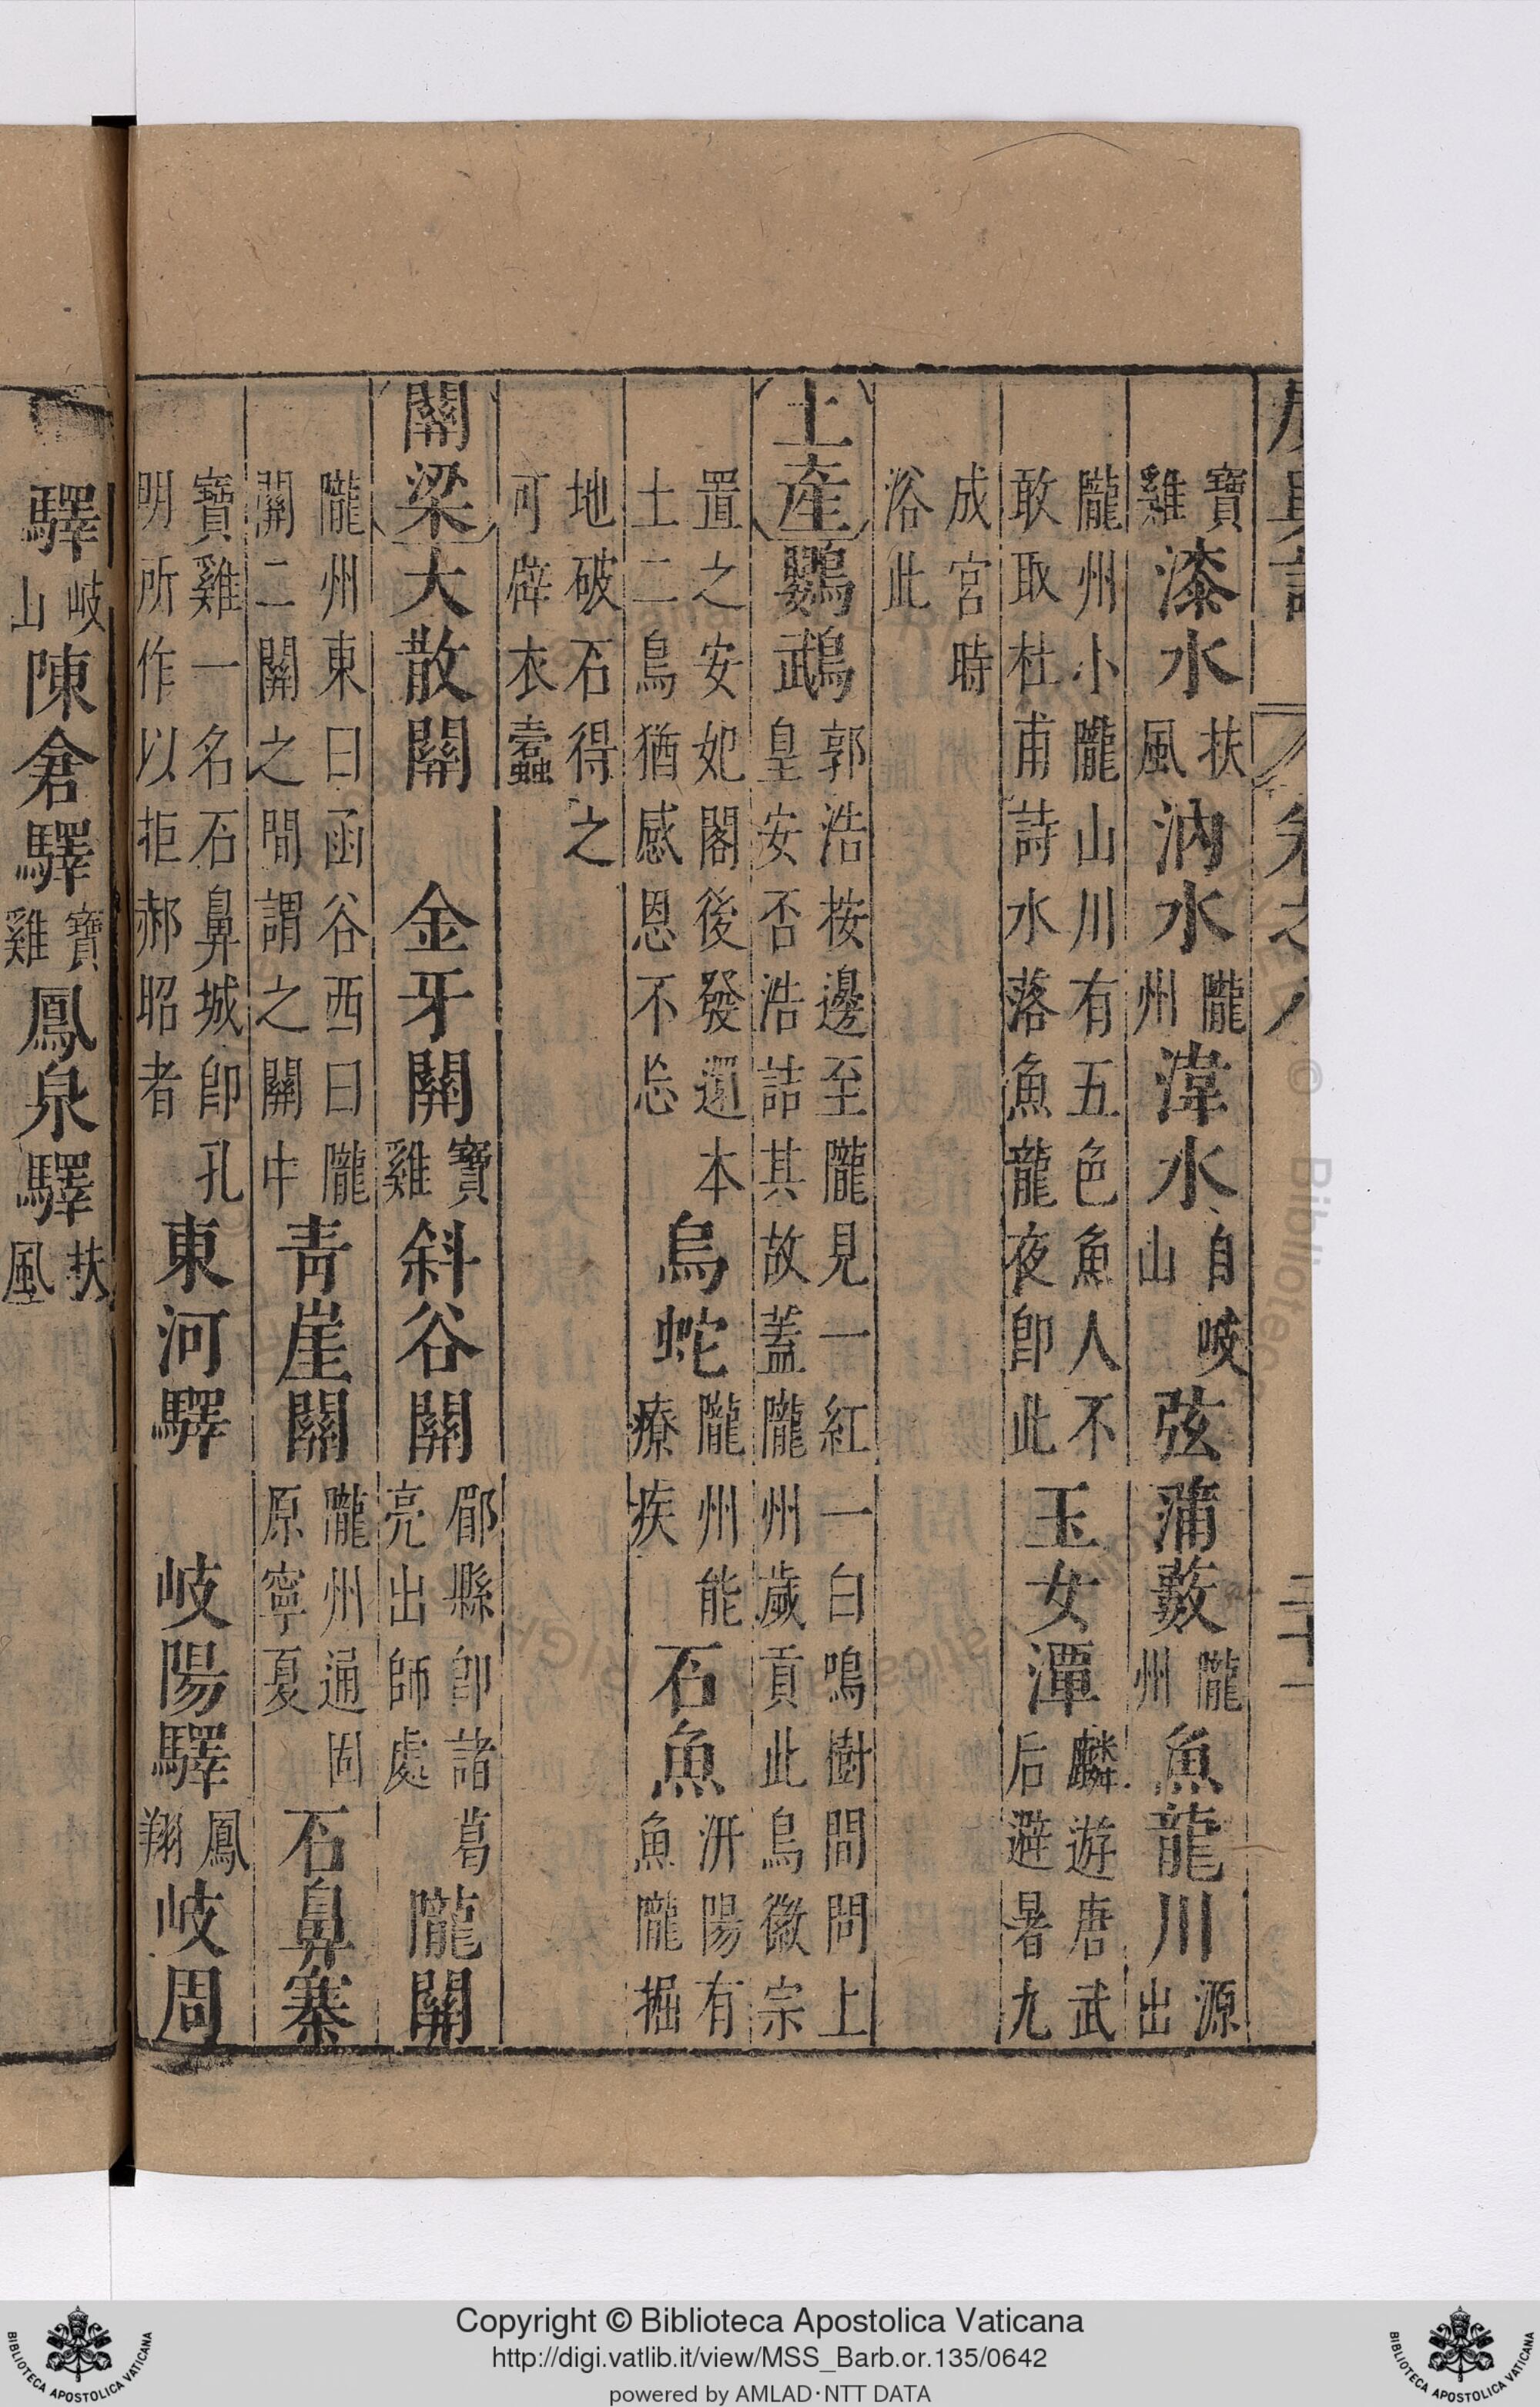 寶雞漆水扶風汭水隴州湋水自岐山弦蒲藪隴州魚龍川源出
隴州小隴山川有五色魚人不敢取杜甫詩水落魚龍夜即此玉女潭麟遊唐武后避暑九
成宮時浴此
土產鸚鵡郭浩按邊至隴見一紅一白鳴樹間問上皇安否浩詰其故蓋隴州歲貢此鳥徽宗
置之安妃閣後發還本土二鳥猶感恩不忘烏蛇隴州能療疾石魚汧陽有魚隴掘
地破石得之可辟衣蠹
關梁大散關 金牙關寶雞斜谷關郿縣即諸葛亮出師處隴關
隴州東曰函谷西曰隴關二關之間謂之關中青崖關隴州通固原寧夏石鼻寨
寶雞一名石鼻城即孔明所作以拒郝昭者東河驛 岐陽驛鳳翔岐周
驛岐山陳倉驛寶雞鳳泉驛扶風
Copyright © Biblioteca Apostolica Vaticana
http://digi.vatlib.it/view/MSS_Barb.or.135/0642
powered by AMLAD·NTT DATA
BIBLIOTECA APOSTOLICA VATICANA
BIBLIOTECA APOSTOLICA VATICANA